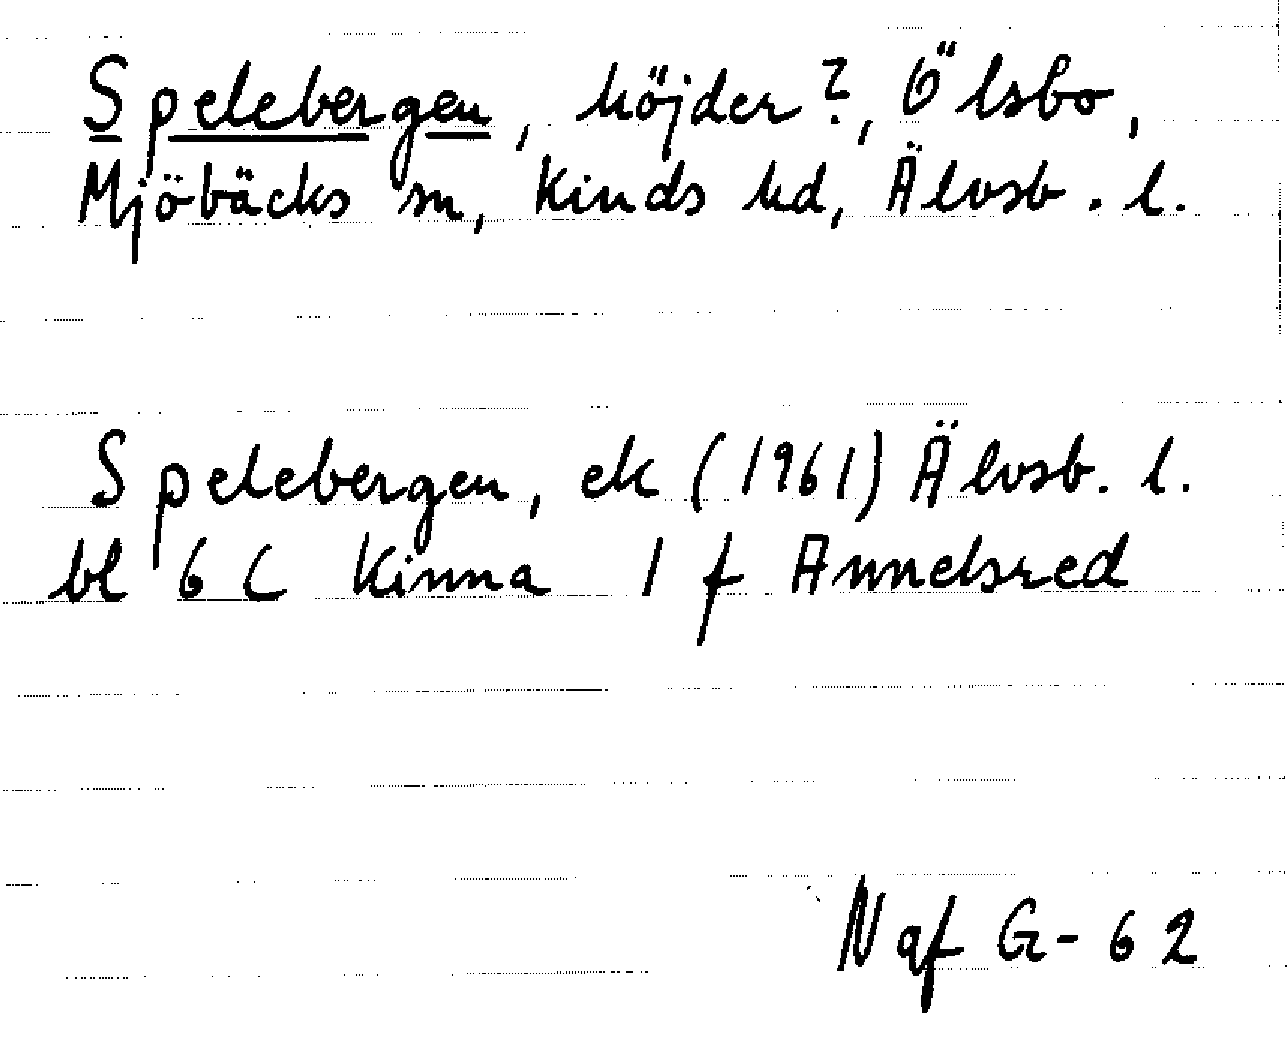 Spelebergen, höjder?, Ölsbo,
Mjöbäcks sn, Kinds hd, Älvsb. l.
Spelebergen, ek (1961) Älvsb. l.
bl 6 C Kinna 1 f Annelsred
Naf G-62